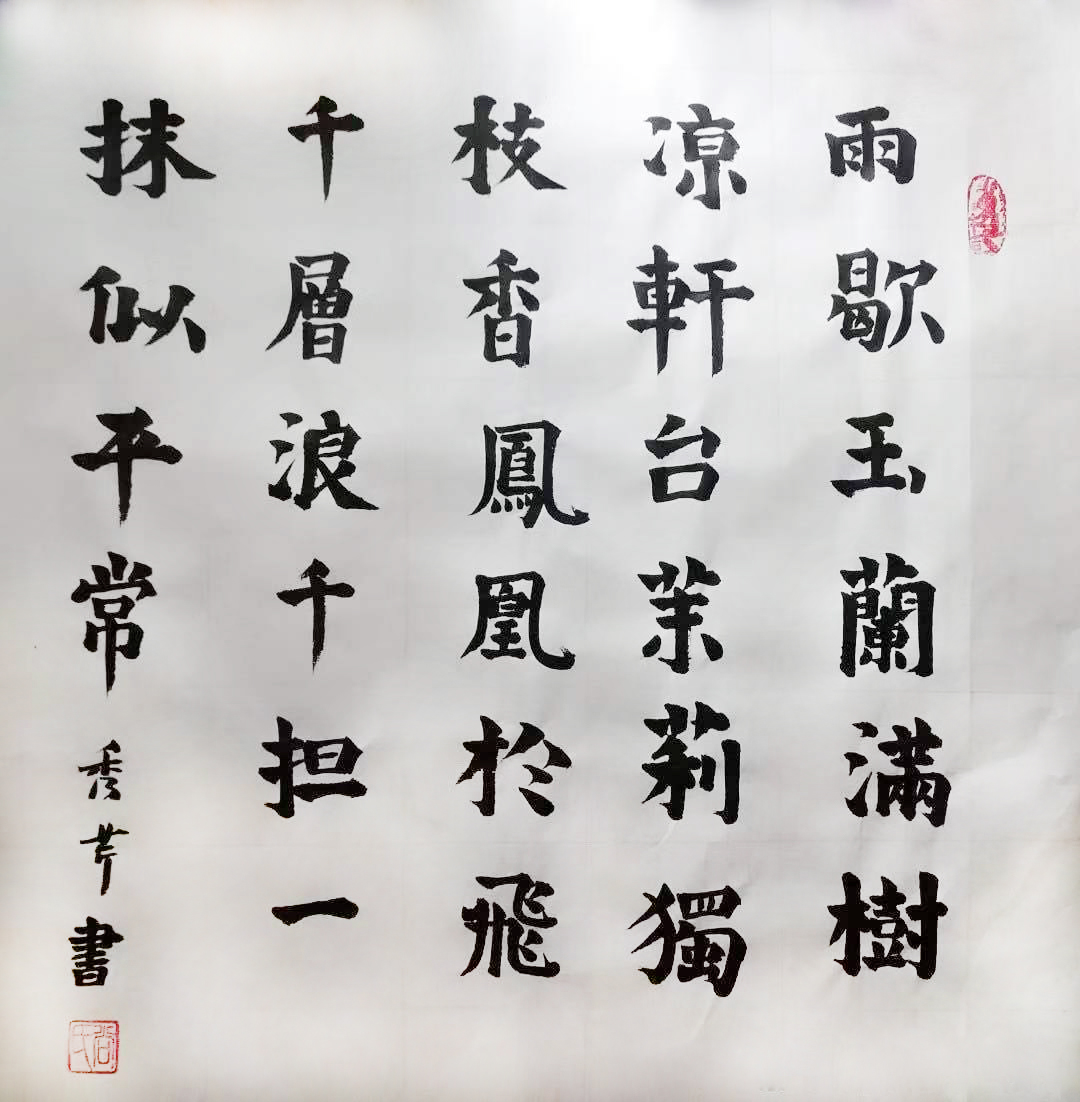 雨歇玉蘭滿樹
凉軒台茉莉獨
枝香鳳凰於飛
千層浪千担一
抹似平常
秀芹書